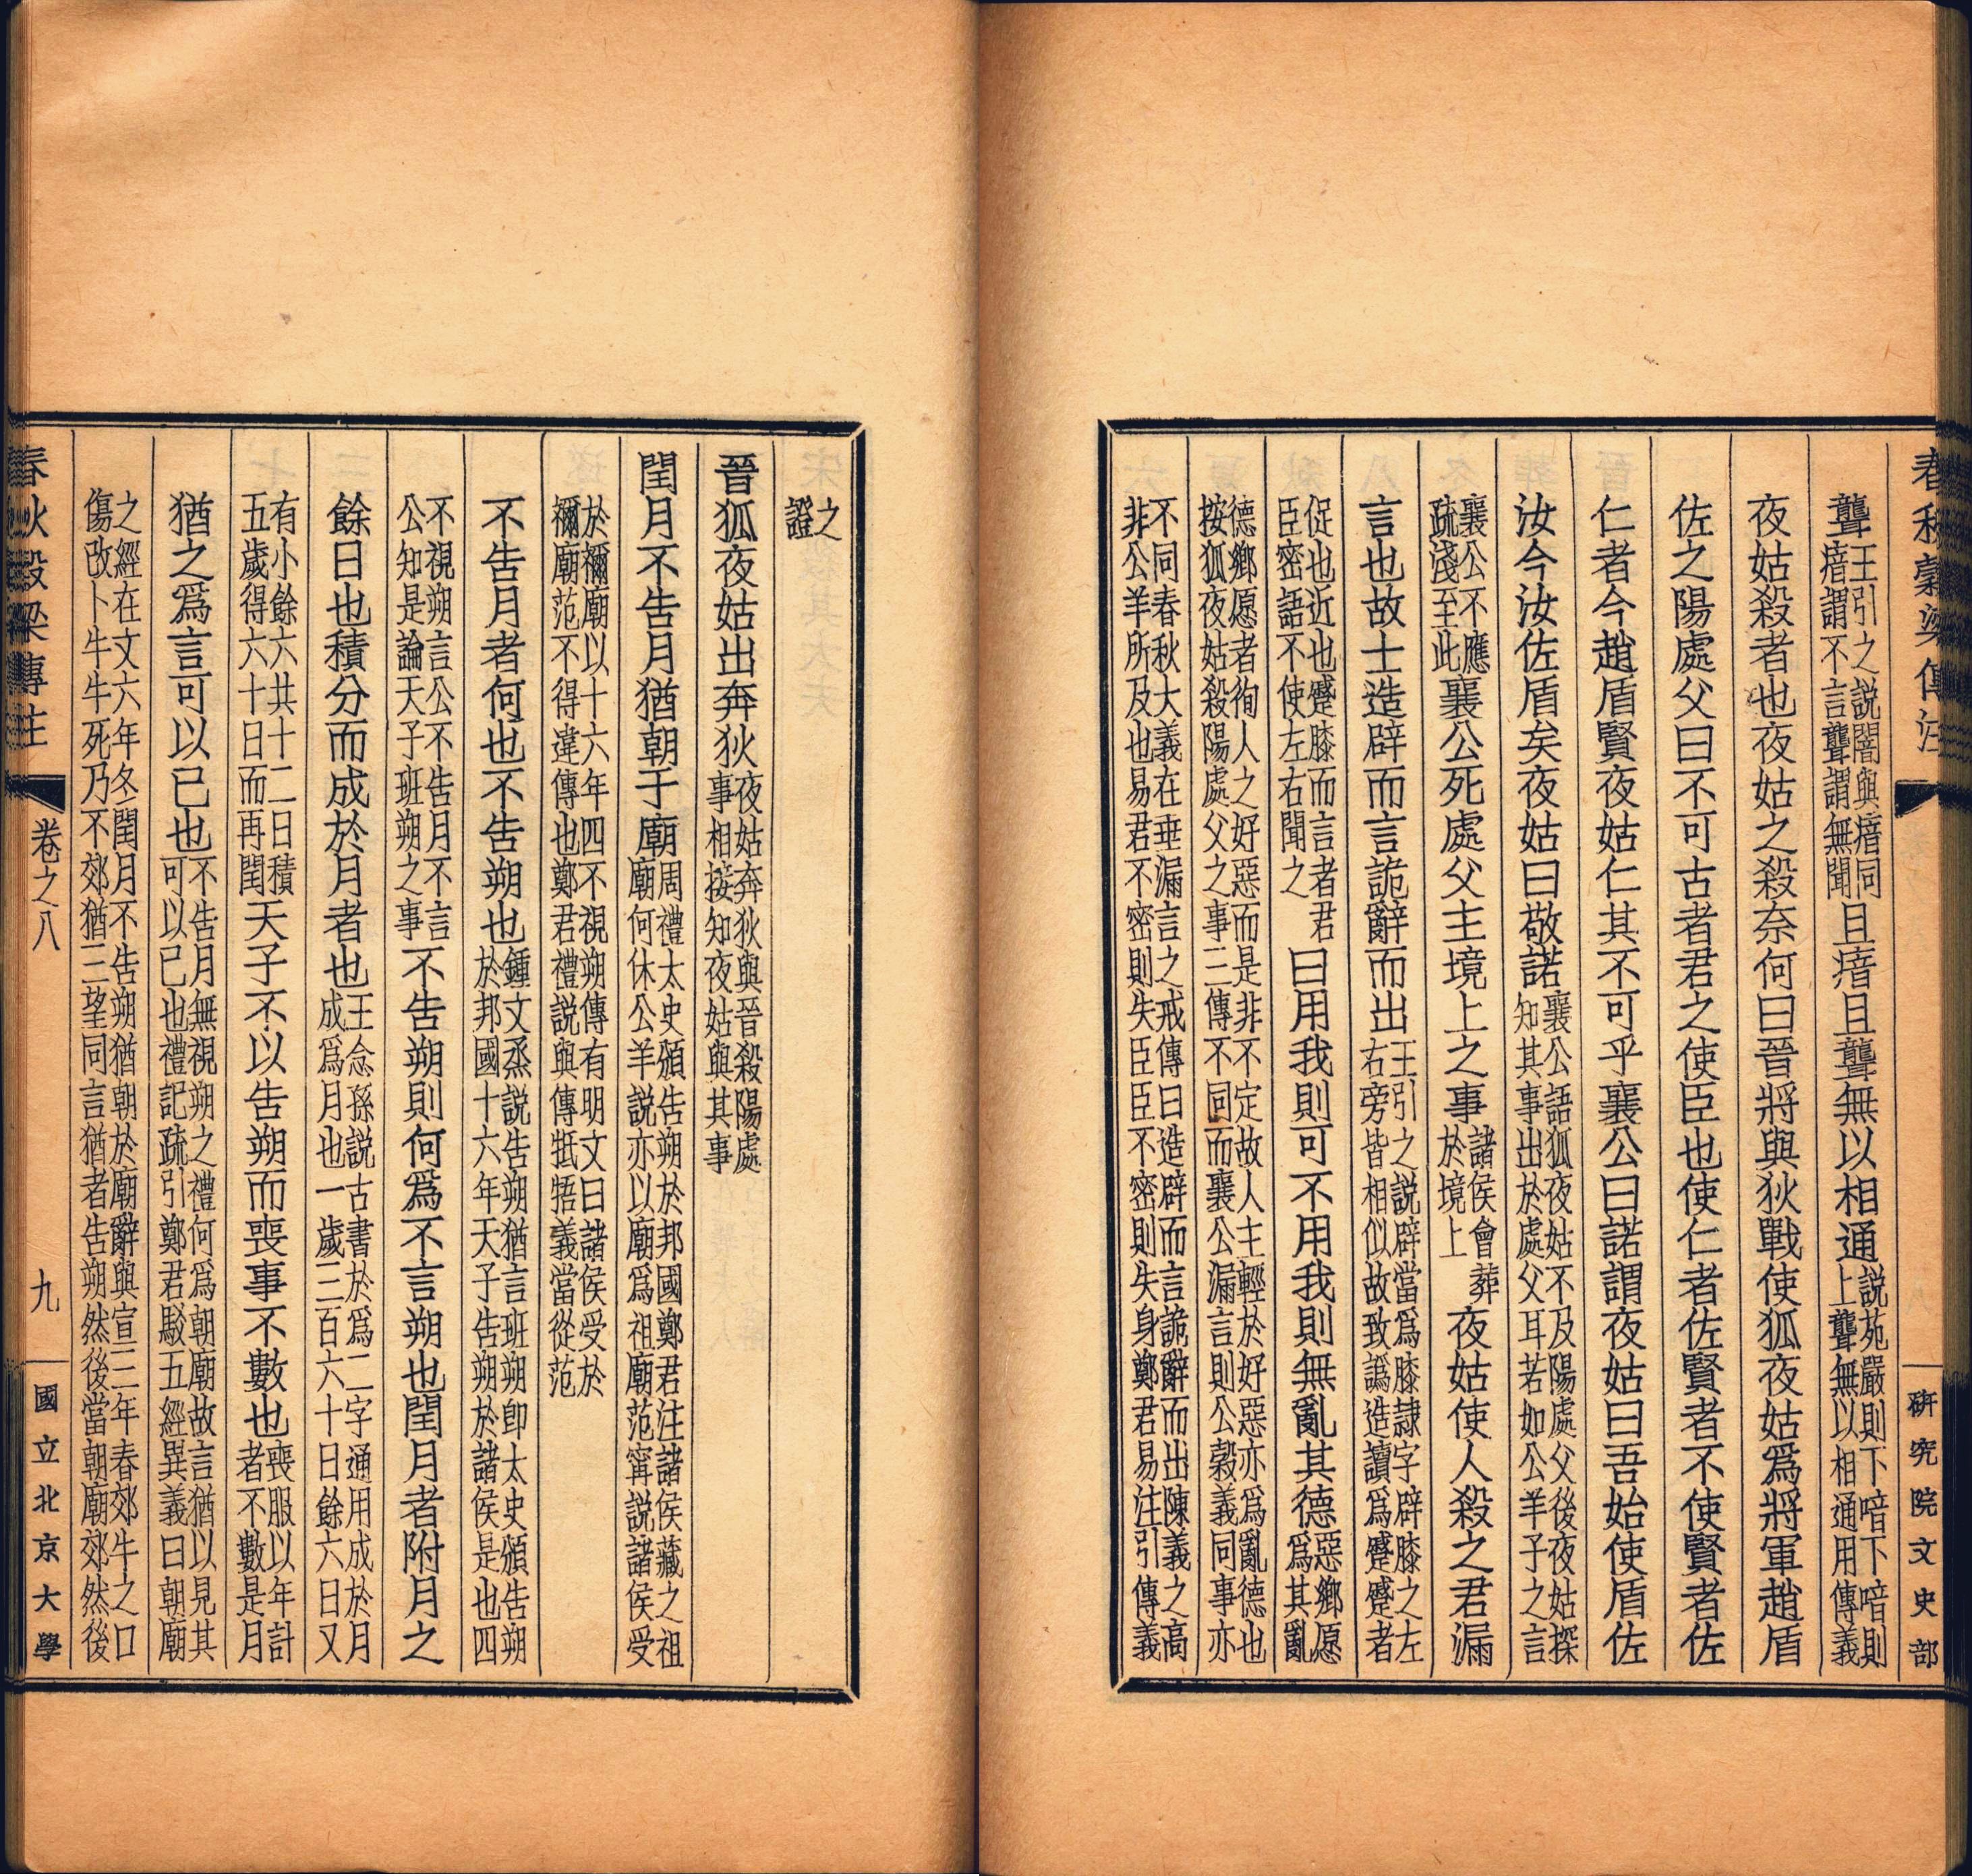 春秋穀梁傳注
研究院文史部
聾王引之説闇與瘖同瘖謂不言聾謂無聞且瘖且聾無以相通説苑嚴則下喑下喑則上聾無以相通用傳義
夜姑殺者也夜姑之殺奈何曰晉將與狄戰使狐夜姑爲將軍趙盾
佐之陽處父曰不可古者君之使臣也使仁者佐賢者不使賢者佐
仁者今趙盾賢夜姑仁其不可乎襄公曰諾謂夜姑曰吾始使盾佐
汝今汝佐盾矣夜姑曰敬諾襄公語狐夜姑不及陽處父後夜姑探知其事出於處父耳若如公羊子之言
襄公不應疏淺至此襄公死處父主境上之事諸侯會葬於境上夜姑使人殺之君漏
言也故士造辟而言詭辭而出王引之説辟當爲膝隷字辟膝之左右旁皆相似故致譌造讀爲蹙蹙者
促也近也蹙膝而言者君臣密語不使左右聞之曰用我則可不用我則無亂其德惡鄉愿爲其亂
德鄉愿者徇人之好惡而是非不定故人主輕於好惡亦爲亂德也按狐夜姑殺陽處父之事三傳不同而襄公漏言則公穀義同事亦
不同春秋大義在垂漏言之戒傳曰造辟而言詭辭而出陳義之高非公羊所及也易君不密則失臣臣不密則失身鄭君易注引傳義
之證
晉狐夜姑出奔狄夜姑奔狄與晉殺陽處事相接知夜姑與其事
閏月不告月猶朝于廟周禮太史頒告朔於邦國鄭君注諸侯藏之祖廟何休公羊説亦以廟爲祖廟范甯説諸侯受
於禰廟以十六年四不視朔傳有明文曰諸侯受於禰廟范不得違傳也鄭君禮説與傳牴牾義當從范
不告月者何也不告朔也鍾文烝説告朔猶言班朔卽太史頒告朔於邦國十六年天子告朔於諸侯是也四
不視朔言公不告月不言公知是論天子班朔之事不告朔則何爲不言朔也閏月者附月之
餘日也積分而成於月者也王念孫説古書於爲二字通用成於月成爲月也一歲三百六十日餘六日又
有小餘六共十二日積五歲得六十日而再閏天子不以告朔而喪事不數也喪服以年計者不數是月
猶之爲言可以已也不告月無視朔之禮何爲朝廟故言猶以見其可以已也禮記疏引鄭君駁五經異義曰朝廟
之經在文六年冬閏月不告朔猶朝於廟辭與宣三年春郊牛之口傷改卜牛牛死乃不郊猶三望同言猶者告朔然後當朝廟郊然後
春秋穀梁傳注
卷之八
九
國立北京大學